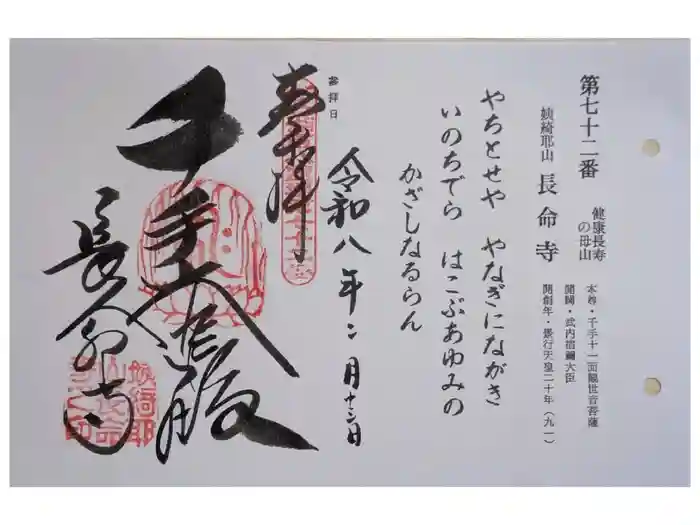 第七十二番
健康長寿
の母山
姨綺耶山 長命寺
本尊・千手十一面観世音菩薩
開闢・武内宿禰大臣
開創年・景行天皇二十年(九一)
やちとせや やなぎにながき
いのちでら はこぶあゆみの
かざしなるらん
参拝日
令和八年二月十二日
奉拝
千手大悲殿
長命寺
姨綺耶
山長命
寺之印